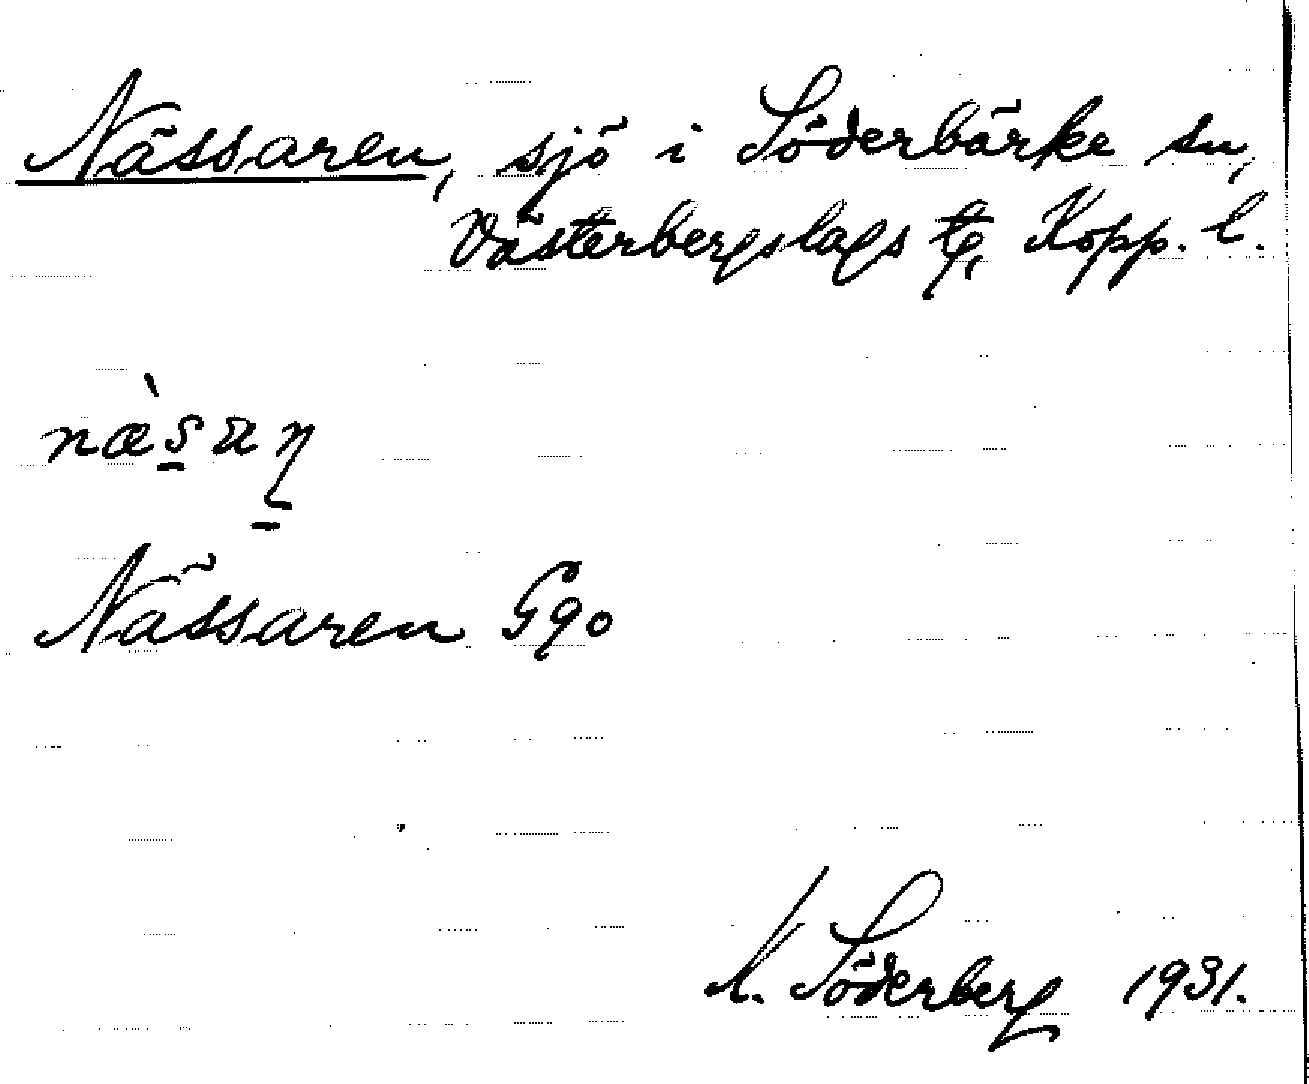 Nässaren, sjö i Söderbärke sn,
Västerbergslags tg, Kopp. l.
Nässaren Ggo
Söderberg 1931.